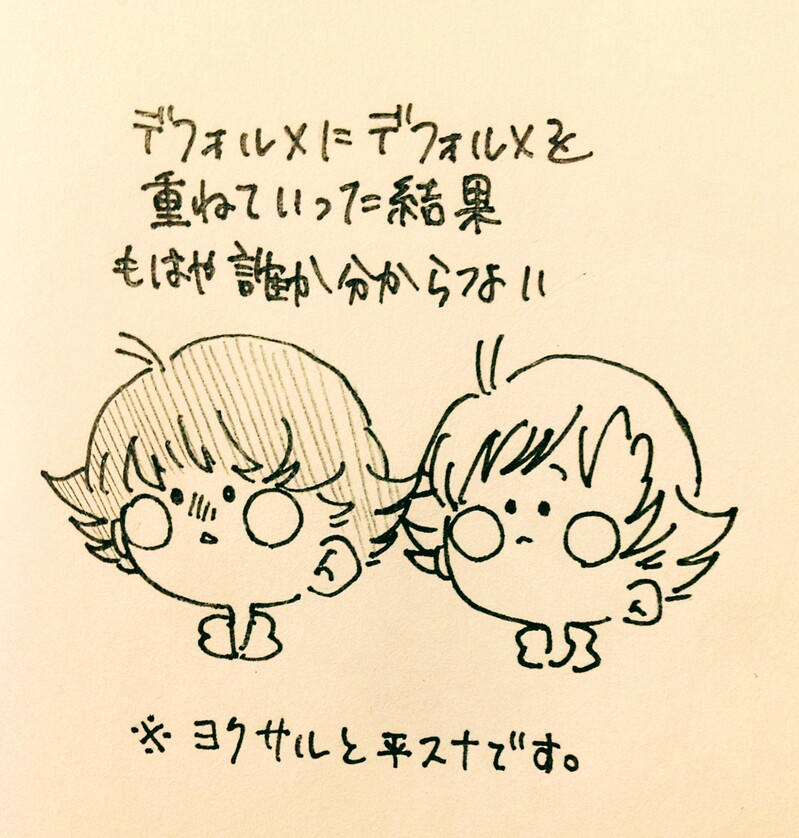 デフォルメにデフォルメを
重ねていった結果
もはや誰か分からない
※ヨクサルと平スナです。